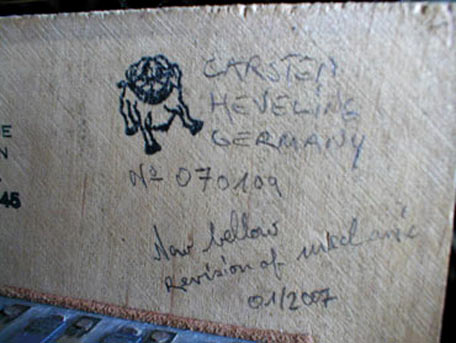 CARSTEN
HEVELING
GERMANY
Nº 070109
New bellow
revision of mechanic
01/2007
E
N
45